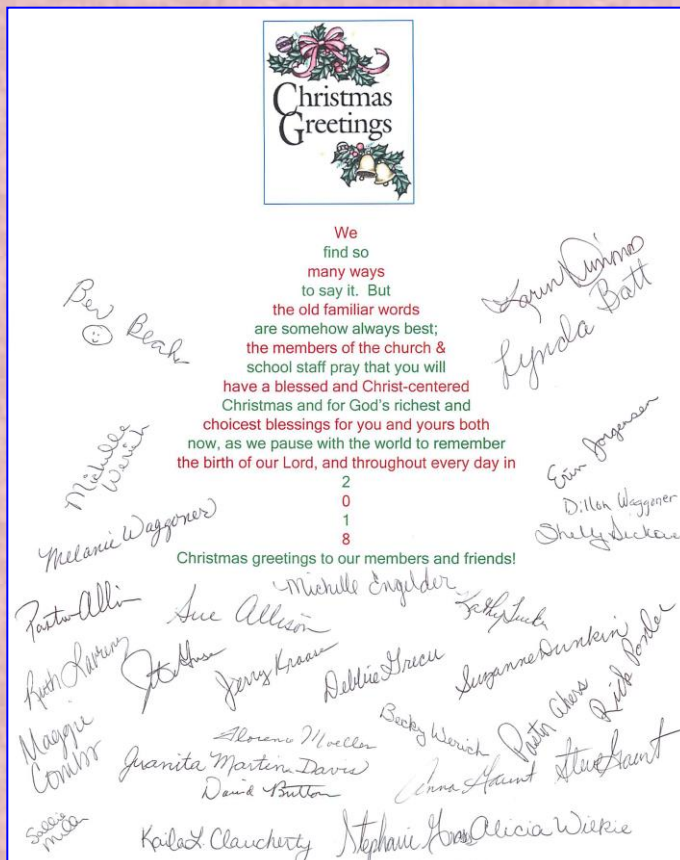 Christmas
Greetings
We
find so
many ways
to say it. But
the old familiar words
are somehow always best;
the members of the church &
school staff pray that you will
have a blessed and Christ-centered
Christmas and for God's richest and
choicest blessings for you and yours both
now, as we pause with the world to remember
the birth of our Lord, and throughout every day in
2
0
1
8
Christmas greetings to our members and friends!
Karin
Lynda Batt
Bev
Michelle
Werich
Erin Jorgensen
Dillon Waggoner
Shelly
Melanie Waggoner
Michelle Engelder
Pastor
Sue Allison
Kathy Tucker
Ruth
Jerry
Debbie Grecu
Suzanne Dunkin
Rick
Maggie
Combs
Florence Moeller
Becky Werich
Pastor Akers
Juanita Martin Davis
David Britton
Anna Gaunt
Steve Gaunt
Sallie
Miller
Kaila L. Claucherty
Stephanie
Alicia Wilkie